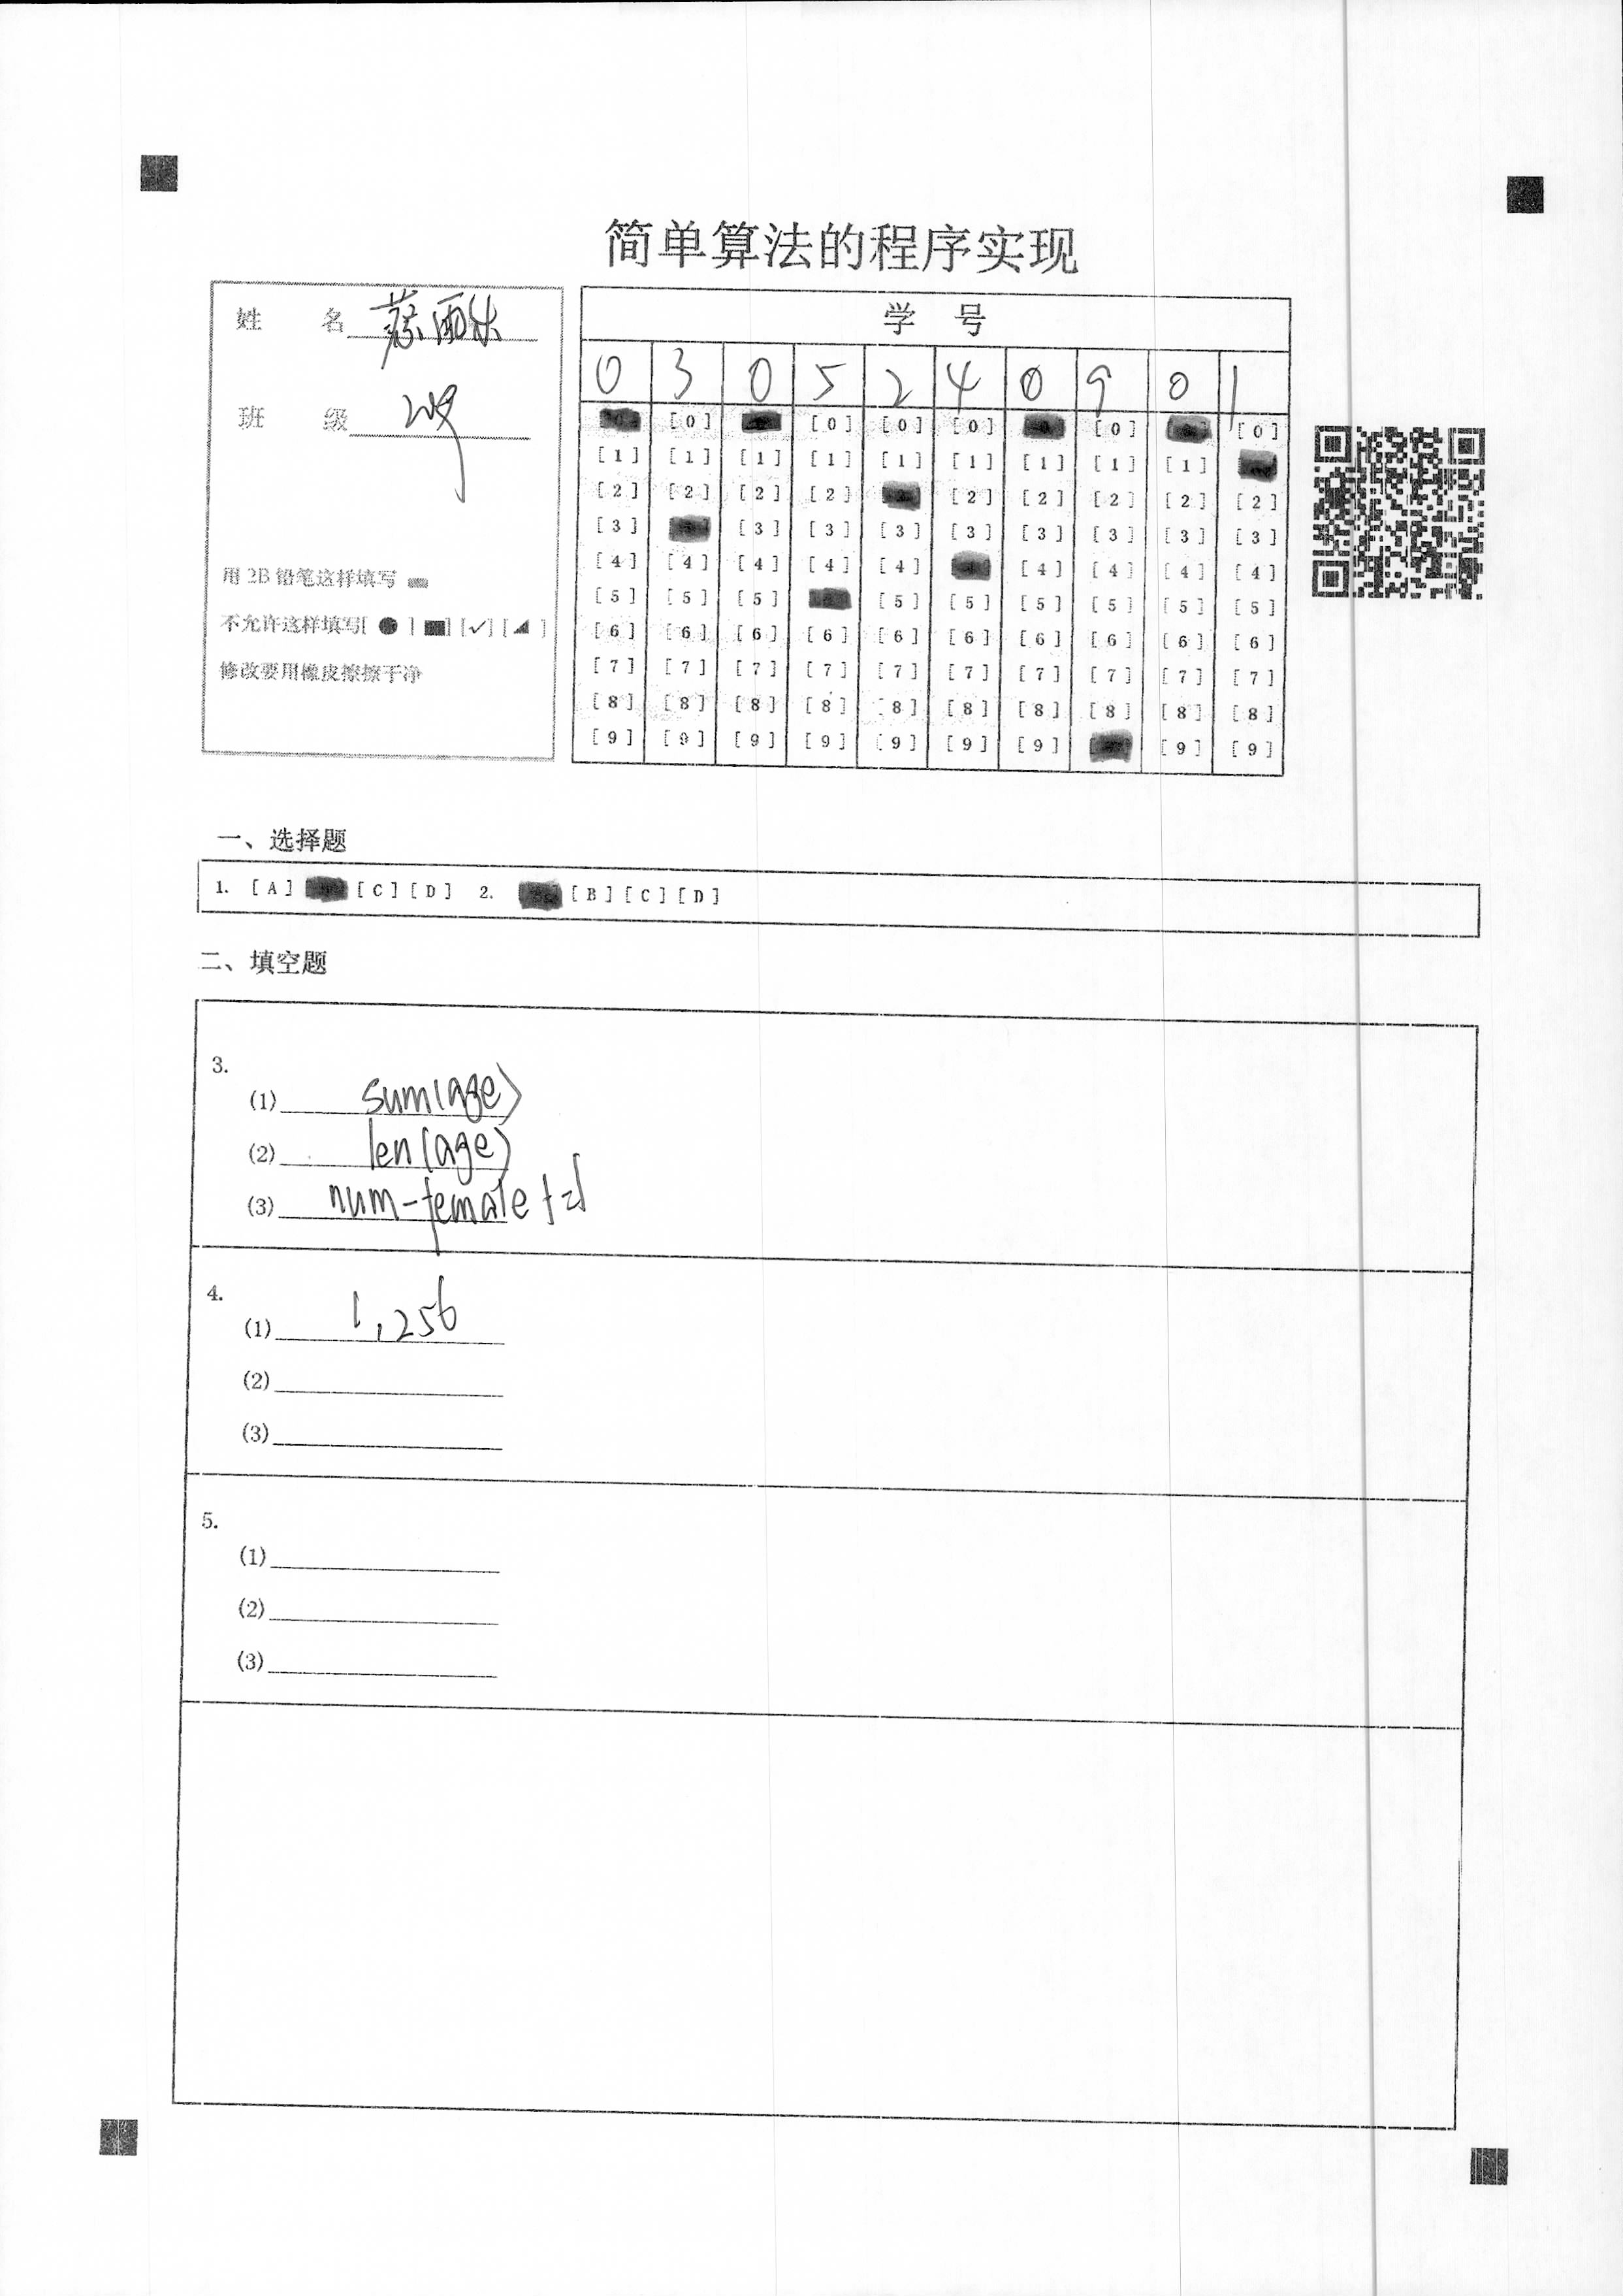 简单算法的程序实现
姓 名
班 级
用 2B 铅笔这样填写
不允许这样填写[ ● ] [■] [✓] [◢ ]
修改要用橡皮擦擦干净
学 号
0 3 0 5 2 4 0 9 0 1
[0] [0] [0] [0] [0] [0]
[1] [1] [1] [1] [1] [1] [1] [1] [1]
[2] [2] [2] [2] [2] [2] [2] [2] [2]
[3] [3] [3] [3] [3] [3] [3] [3] [3]
[4] [4] [4] [4] [4] [4] [4] [4] [4]
[5] [5] [5] [5] [5] [5] [5] [5] [5]
[6] [6] [6] [6] [6] [6] [6] [6] [6] [6]
[7] [7] [7] [7] [7] [7] [7] [7] [7] [7]
[8] [8] [8] [8] [8] [8] [8] [8] [8] [8]
[9] [9] [9] [9] [9] [9] [9] [9] [9]
一、选择题
1. [A] [C] [D] 2. [B] [C] [D]
二、填空题
3.
(1) sum(age)
(2) len(age)
(3) num-female+=1
4.
(1) 1,256
(2)
(3)
5.
(1)
(2)
(3)